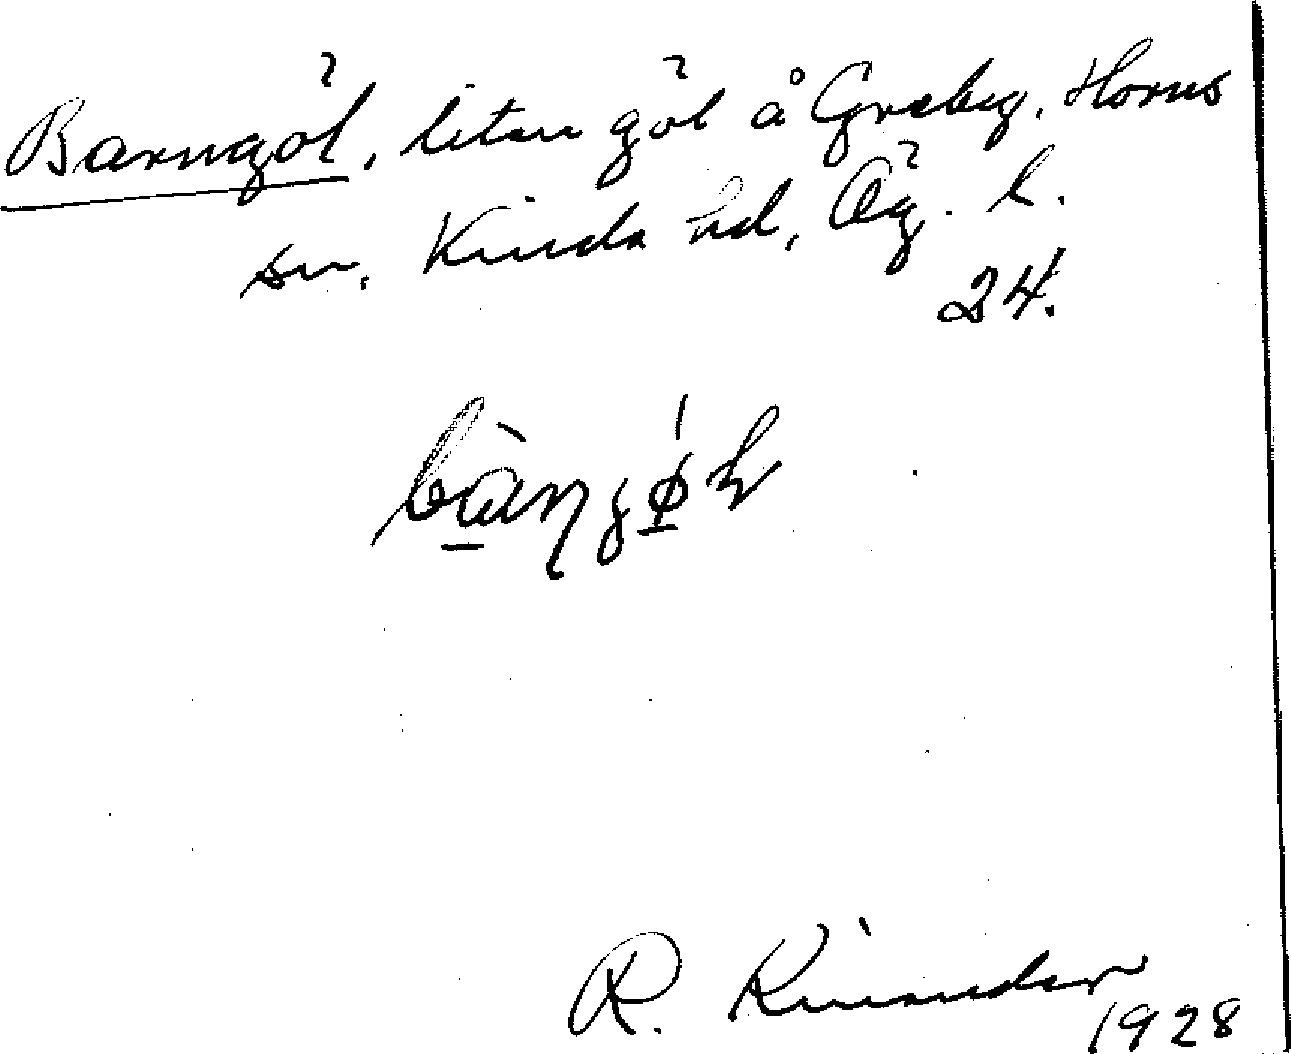 Barngöl, liten göl å Greby, Horns
sn, Kinda hd, Ög. l.
24.
R. Kinander
1928